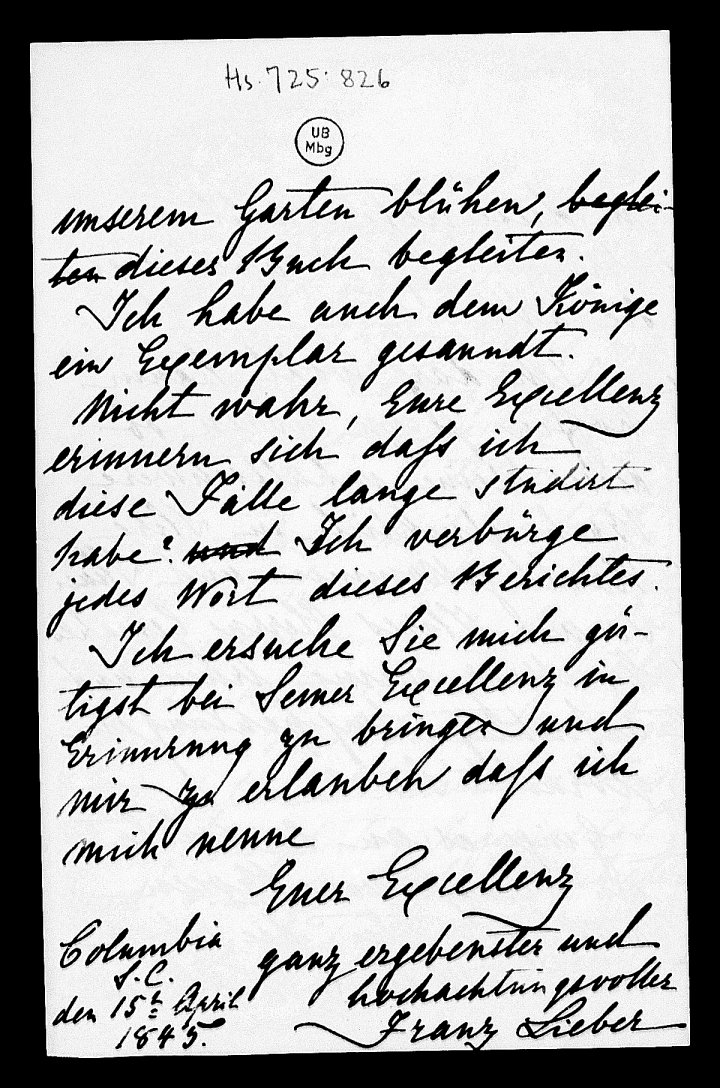 Hs. 725:826
UB
Mbg
unserem Garten blühen, beglei-
ten dieses Buch begleiten.
Ich habe auch dem Könige
ein Exemplar gesanndt.
Nicht wahr, Eure Excellenz
erinnern sich daſs ich
diese Fälle lange studirt
habe? und Ich verbürge
jedes Wort dieses Berichtes.
Ich ersuche Sie mich gü-
tigst bei Seiner Excellenz in
Erinnrung zu bringen und
mir zu erlauben daſs ich
mich nenne
Euer Excellenz
ganz ergebenster und
hochachtungsvoller
Franz Lieber
Columbia
S.C.
den 15t April
1845.